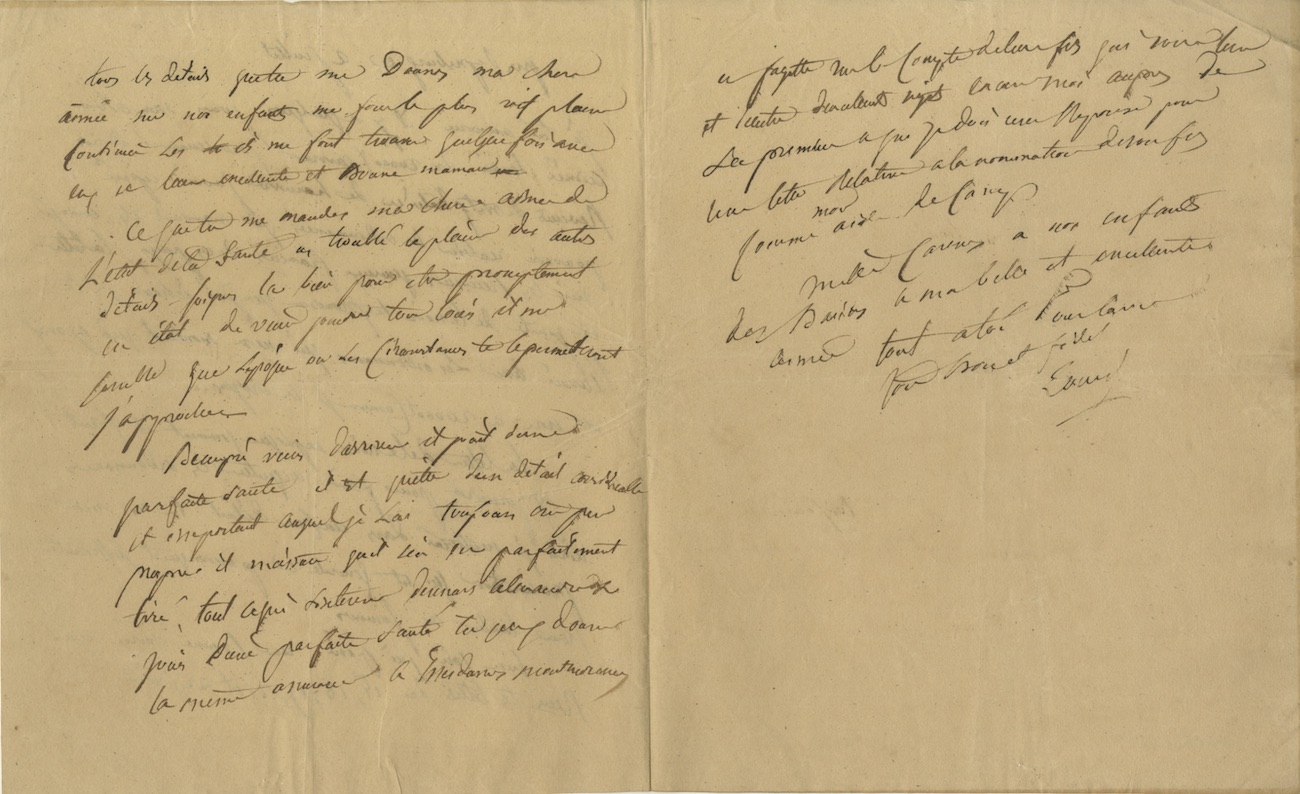 tous les détails que tu me Donnes ma chere
aimée sur nos enfants me font le plus vif plaisir
Continue Les ils me font trouver quelquefois avec
eux et leur excellente et Bonne maman
Ce que tu me mandes ma chere aimée de
L'état de ta Santé a troublé le plaisir des autres
détails. soignes la bien pour etre promptement
en état de venir joindre ton Louis il me
semble que L'époque ou Les Circonstances te le permettront
s'approche
Beaupré vient d'arriver il jouit d'une
parfaite santé il est quitte d'un détail considerable
et important auquel je L'ai toujours cru peu
propre il m'assure qu'il s'en est parfaitement
tiré, tout ce qui
jouit D'une parfaite Santé tu peux donner
la même assurance a Mesdames montmorency
et fayette sur le Compte de leur fils qui sont l'un
et l'autre d'excellents sujets excuse moi aupres de
La premiere a qui je dois une Reponse pour
une lettre Relative a la nomination de son fils
Comme mon aide de Camp
mille Caresses a nos enfants
des Baisers a ma belle et excellente
aimée tout a toi Pour la vie
ton Bon et fidel
Louis